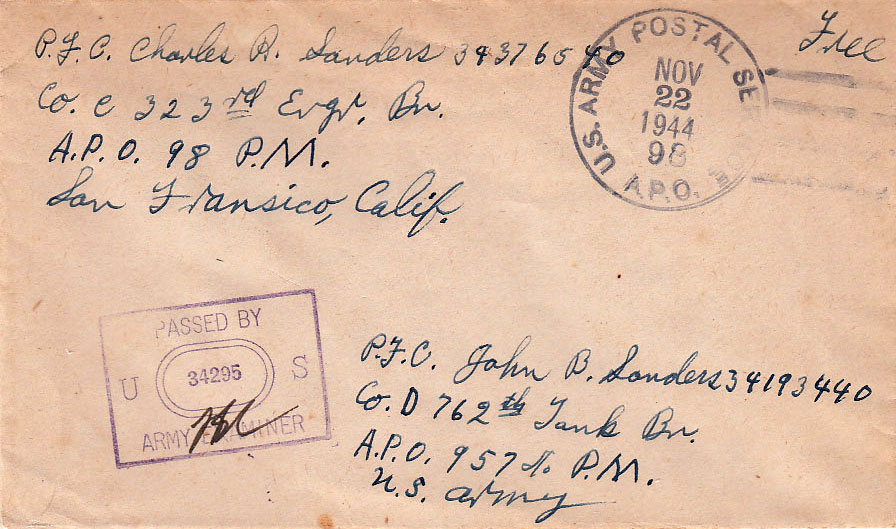 P.F.C. Charles R. Sanders 34376540
Co. C 323rd Engr. Bn.
A.P.O. 98 P.M.
San Fransico, Calif.
Free
U.S. ARMY POSTAL
NOV
22
1944
98
A.P.O.
PASSED BY
U 34295 S
ARMY EXAMINER
P.F.C. John B. Sanders 34193440
Co. D 762th Tank Bn.
A.P.O. 957 P.M.
U.S. Army